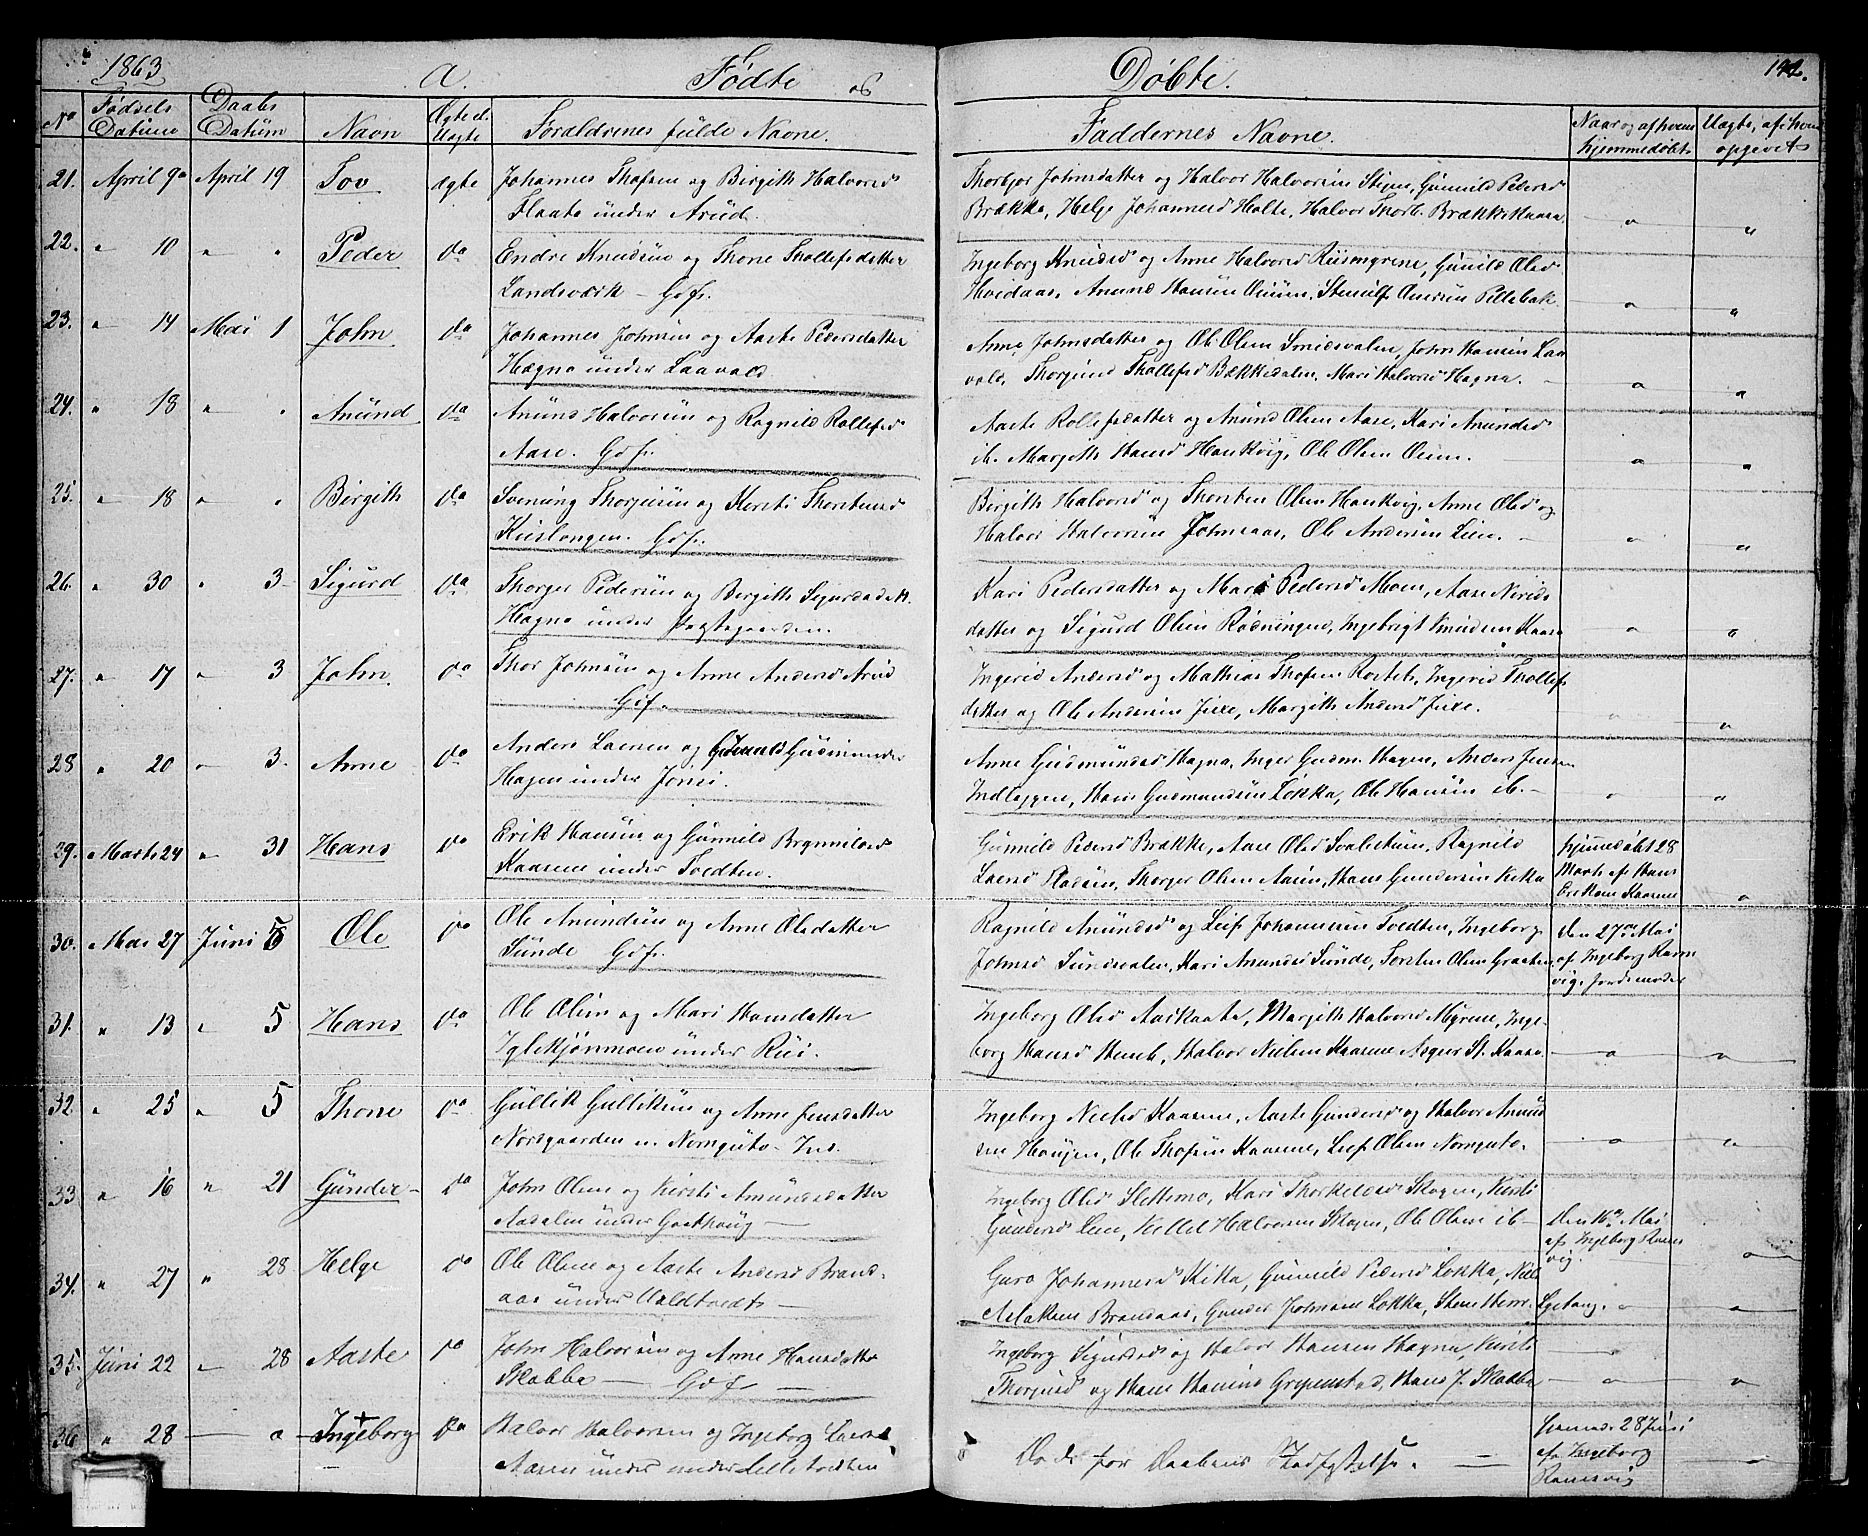 1863
A.
Fødte og Døbte.
142.
No
Fødsels Datum
Daabs Datum
Navn
Ægte el. Uægte
Foraldrenes fulde Navne.
Faddernes Navne.
Naar og af hvem hjemmedøbt
Uægte, af hvem opgivet
21. April 9 April 19 Tov ægte Johannes Thofsen og Birgith Halvorsd
Flaata under Arud.
Thorbjør Johnsdatter og Halvor Halvorsen Stijen, Gunnild Pedersd
Brække, Helge Johannesd Holte, Halvor Thorb. Brækkekaasa
22. " 10 " " Peder do Endre Knudsen og Thone Thollefsdatter
Landsværk – Gdf.
Ingeborg Knudsd og Anne Halvorsd Riismyrene, Gunnild Olsd
Hvidaas, Anund Hansen
23. " 14 Mai 1 John do Johannes Johnsen og Aaste Pedersdatter
Hægna under Laavald
Anne Johnsdatter og Ole Olsen Smedsdalen, John Hansen Laa-
vald, Thorjuud Thollefsd Bækkedalen, Mari Halvorsd Hagna.
24. " 18 " " Anund do Anund Halvorsen og Ragnild Rollefsd
Aase. Gdf.
Aaste Rollefsdatter og Anund Olsen Aase, Kari Anundsd
ib. Margith Hansd Haukvig, Ole Olsen
25. " 18 " " Birgith do Svenung Thorjusen og Kirsti Thorstensd
Gdf.
Birgith Halvorsd og Thorsten Olsen Haukvig, Anne Olsd og
Halvor Halvorsen Johnsaas, Ole Andersen Leine.
26. " 30 " 3 Sigurd do Thorger Pedersen og Birgith Sigurdsdt.
Hagna under Præstegaarden.
Kari Pedersdatter og Mari Pedersd Moen, Aase Nirids
datter og Sigurd Olsen Rødningen, Ingebrigt Knudsen Kaasa
27. " 17 " 3 John do Thor Johnsen og Anne Andersd Arud
Gdf.
Ingerid Andersd og Mathias Thofsen Rostet, Ingerid Thollefs
datter og Ole Andersen Juve, Margith Andersd Juve.
28 " 20 " 3 Anne do Anders Larsen og Gunnild Gudmundsd
Hagen under Jonsi.
Anne Gudmundsd Hagna, Inger Gudm. Hagen, Anders Jensen
Indlæggen, Hans Gudmundsen Løkka, Ole Hansen ib.
29. Marts 24 " 31 Hans do Erik Hansen og Gunnild Brynnildsd
Kaasene under Tvedten.
Gunnild Pedersd Brække, Aase Olsd Svalestuen, Ragnild
Larsd Thorger Olsen Aasen, Hans Gundersen Kikka
hjemmedøbt 28
Marts af Hans
Eriksen Kaasene
30. Mai 27 Juni 5 Ole do Ole Anundsen og Anne Olsdatter
Sunde Gdf.
Ragnild Anundsd og Leif Johannesen Tvedten, Ingeborg
Johnsd Sundsdalen, Kari Anundsd Sunde, Torsten Olsen Graaten
den 27de Mai
af Ingeborg Ram
vig. Jordemoder
31. " 13 " 5 Hans do Ole Olsen og Mari Hansdatter
Iglekjønmoen under Rui.
Ingeborg Olsd Aaskaata, Margith Halvorsd Myrene, Inge-
borg Hansd Halvor Nielsen Kaasene Asgier St. Kaasa
32. " 25 " 5 Thone do Gullik Gulliksen og Anne Jensdatter
Norsgaarden u. Nomguto. Ins.
Ingeborg Nielsd Kaasene, Aaste Gundersd og Halvor Anund
sen Haugen, Ole Thofsen Kaasene, Leif Olsen Nomguto.
33 " 16 " 21 Gunder do John Olsen og Kirsti Amundsdatter
Aadalen under Gaathaug
Ingeborg Olsd Slettemo, Kari Thorkeldsd Skogen, Kirsti
Gundersd Leie, Kittel Halvorsen Skogen, Ole Olsen ib
Den 16de Mai
af Ingeborg Rams
vig.
34. " 27 " 28 Helge do Ole Olsen og Aaste Andersd Brand-
aas under Valdtvedt
Guro Johannesd Kikka, Gunnild Pedersd Løkka, Niels
Aslaksen Brandaas, Gunder Johnsen Løkka, Sten Henr. Lgetang.
35. Juni 22 " 28 Aaste do John Halvorsen og Anne Hansdatter
Skabba Gdf.
Ingeborg Sigurdsd og Halvor Hansen Hagna, Kirsti
Thorjusd og Hans Hansen Gripenstad, Hans J. Skabba
36 " 28 Ingeborg do Halvor Halvorsen og Ingeborg Larsd
Aasen under under Lilletvedten
Død før Daabens Stadfæstelse.
hjemmd. 28 Juni
af Ingeborg
Ramsvig